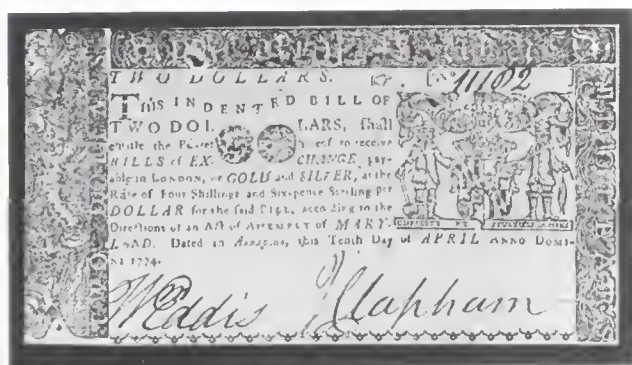 TWO DOLLARS. No 11102
THIS INDENTED BILL OF
TWO DOL LARS, shall
entitle the Bearer hereof to receive
BILLS of EXCHANGE, pay-
able in LONDON, or GOLD and SILVER, at the
Rate of Four Shillings and Six-pence Sterling per
DOLLAR for the said BILL, according to the
Directions of an ACT of ASSEMBLY of MARY-
LAND. Dated in Annapolis, this Tenth Day of APRIL ANNO DOMI-
NI 1774.
W Eddis J Clapham